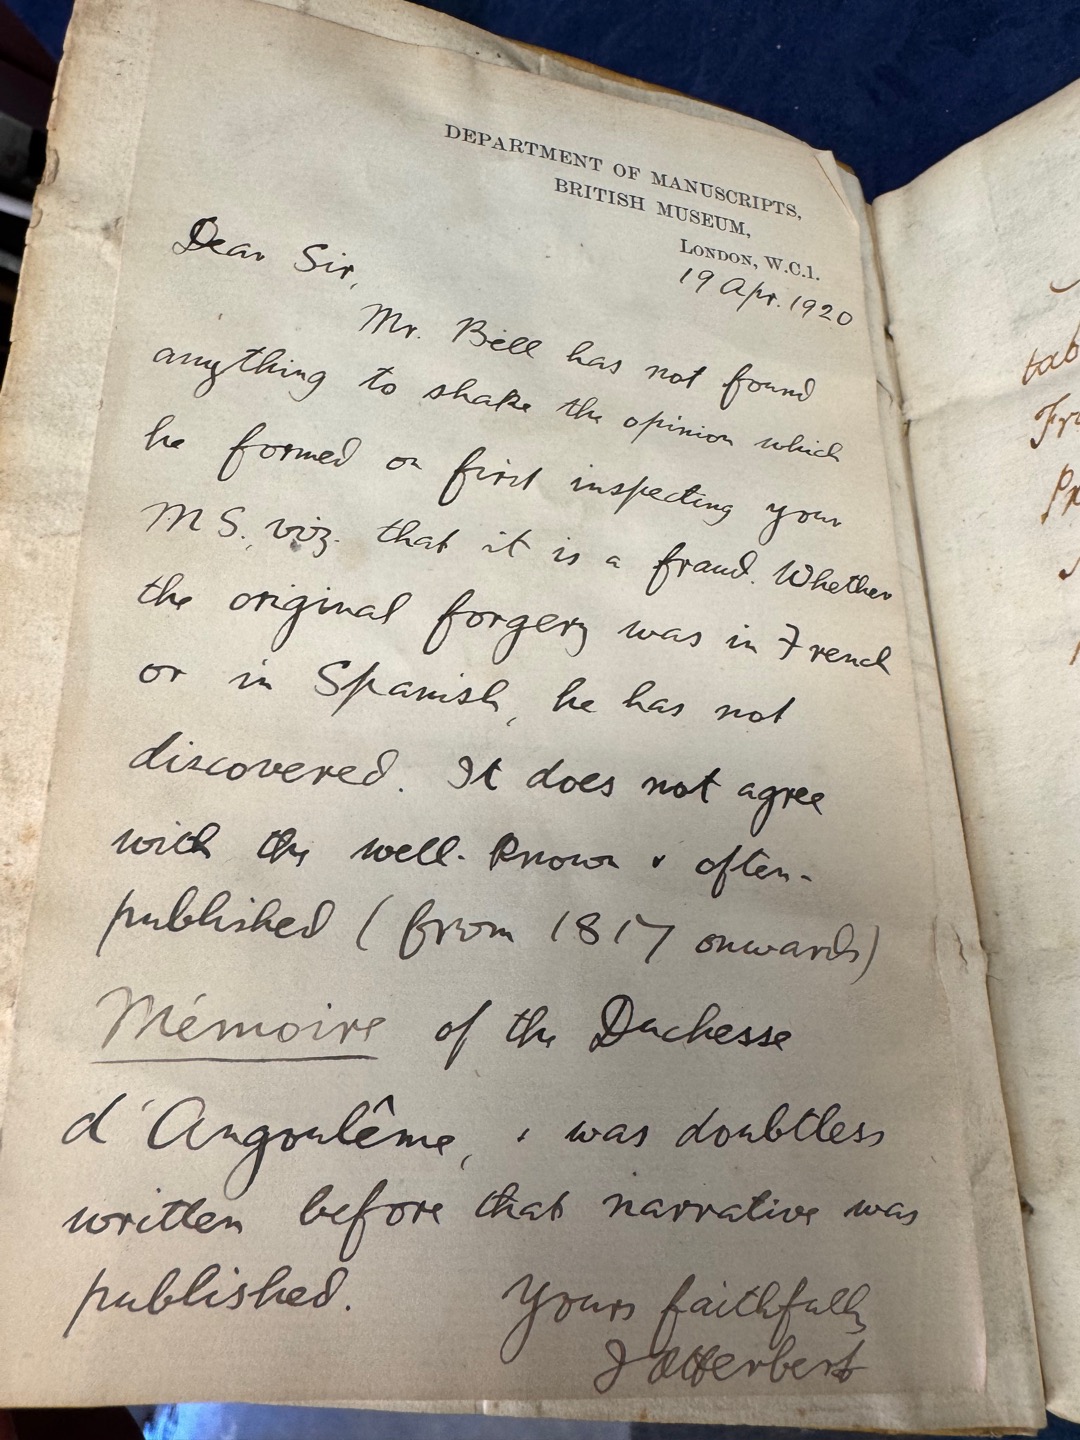 DEPARTMENT OF MANUSCRIPTS,
BRITISH MUSEUM,
LONDON, W.C.1.
19 Apr. 1920
Dear Sir,
Mr. Bell has not found
anything to shake the opinion which
he formed on first inspecting your
MS., viz. that it is a fraud. Whether
the original forgery was in French
or in Spanish, he has not
discovered. It does not agree
with the well-known & often-
published (from 1817 onwards)
Mémoire of the Duchesse
d'Angoulême, & was doubtless
written before that narrative was
published.
Yours faithfully
J A Herbert
tab
Fr